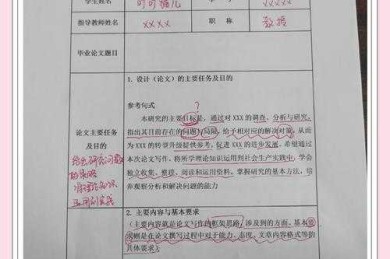 学生姓名 叮叮糖儿 xxxxx
指导教师姓名 xxxx 职 称 教授
毕业论文题目
1. 设计（论文）的主要任务及目的
参考句式
?
本研究的主要目标是，通过对 XXX 的调查、分析与研究，
指出其目前存在的问题与局限，给予相对应的解决对策，从而
论文主要任务
为 XXX 的转型升级提供参考，促进 XXX 的进步发展。希望通过
及目的
本次论文写作，将所学理论知识运用到社会生产实践中，学会
独立收集、整理、阅读和运用资料，掌握研究的基本方法，培
养观察分析和解决问题的能力
2. 主要内容与基本要求
（主要内容就是论文写作的框架思路，涉及到的方面。基本要
求则是在论文撰写过程中对于能力、态度、文章内容格式等的
具体要求）